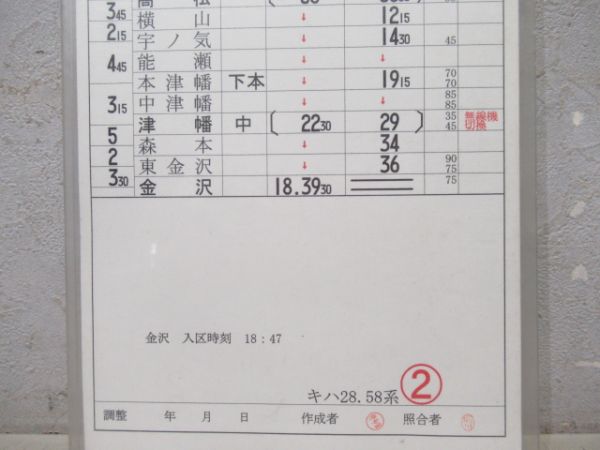 3 45
横山 ↓ 12 15
2 15
宇ノ気 ↓ 14 30 45
能瀬 ↓ ↓
4 45
本津幡 下本 ↓ 19 15 70 70
中津幡 ↓ ↓ 85 85
3 15
津幡 中 ( 22 30 29 ) 35 45 無線機切換
5
森本 ↓ 34
2
東金沢 ↓ 36 90 75
3 30
金沢 18.39 30 75
金沢 入区時刻 18:47
キハ28.58系 ②
調整 年 月 日 作成者 照合者